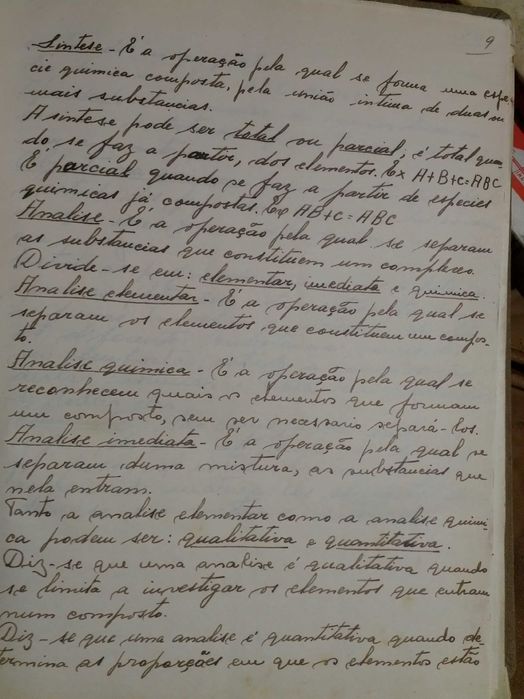 9
Sintese - É a operação pela qual se forma uma espe-
cie quimica composta, pela união intima de duas ou
mais substancias.
A sintese pode ser total ou parcial, é total quan-
do, se faz a partir, dos elementos. Ex A+B+C=ABC
É parcial quando se faz a partir de especies
quimicas já compostas. Exp AB+C=ABC
Analise - É a operação pela qual se separam
as substancias que constituem um complexo.
Divide-se em: elementar, imediata e quimica.
Analise elementar - É a operação pela qual se
separam os elementos que constituem um compos-
to.
Analise quimica - É a operação pela qual se
reconhecem quais os elementos que formam
um composto, sem ser necessario separá-los.
Analise imediata - É a operação pela qual se
separam duma mistura, as substancias que
nela entram.
Tanto a analise elementar como a analise quimi-
ca podem ser: qualitativa e quantitativa.
Diz-se que uma analise é qualitativa quando
se limita a investigar os elementos que entram
num composto.
Diz-se que uma analise é quantitativa quando de
termina as proporções em que os elementos estão